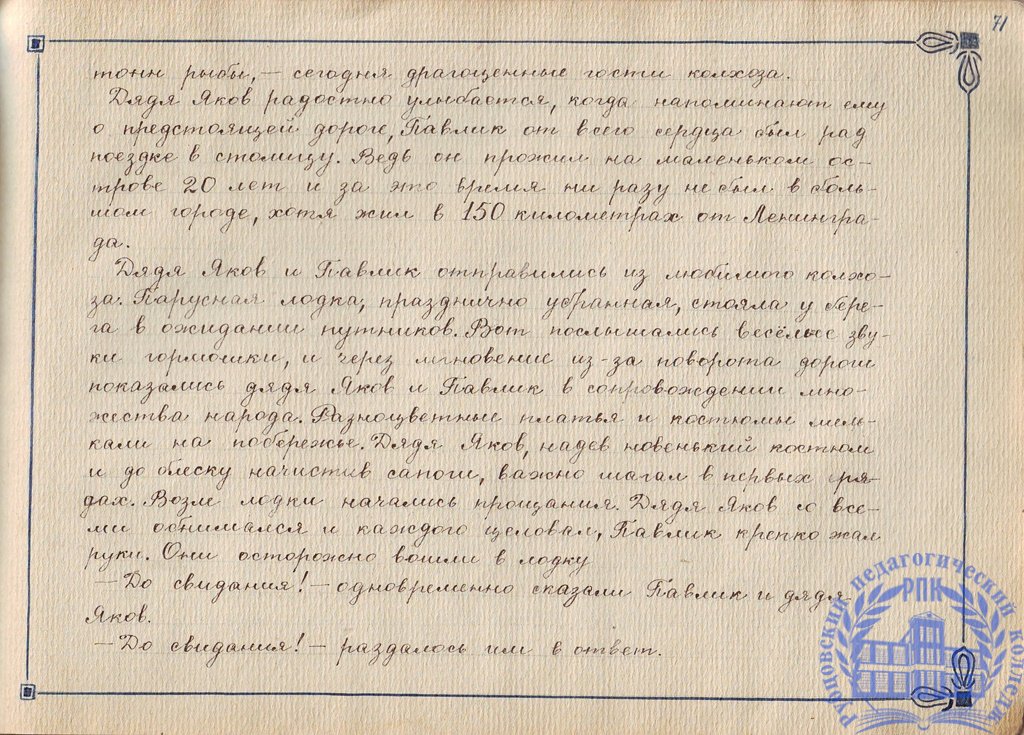 71
тонн рыбы, — сегодня драгоценные гости колхоза.
Дядя Яков радостно улыбается, когда напоминают ему
о предстоящей дороге, Павлик от всего сердца был рад
поездке в столицу. Ведь он прожил на маленьком ос-
трове 20 лет и за это время ни разу не был в боль-
шом городе, хотя жил в 150 километрах от Ленингра-
да.
Дядя Яков и Павлик отправились из любимого колхо-
за. Парусная лодка, празднично убранная, стояла у бере-
га в ожидании путников. Вот послышались весёлые зву-
ки гормошки, и через мгновение из-за поворота дороги
показались дядя Яков и Павлик в сопровождении мно-
жества народа. Разноцветные платья и костюмы мель-
кали на побережье. Дядя Яков, надев новенький костюм
и до блеску начистив сапоги, важно шагал в первых ря-
дах. Возле лодки начались прощания. Дядя Яков со все-
ми обнимался и каждого целовал, Павлик крепко жал
руки. Они осторожно вошли в лодку
— До свидания! — одновременно сказали Павлик и дядя
Яков.
— До свидания! — раздалось им в ответ.
Рубцовский педагогический колледж
РПК